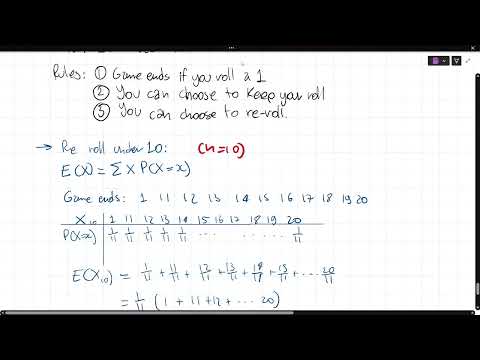 Rules: ① Game ends if you roll a 1
② You can choose to keep your roll
③ You can choose to re-roll.
→ Re roll under 10: (n=10)
E(X) = Σ x P(X=x)
Game ends: 1 11 12 13 14 15 16 17 18 19 20
X₁₀ 1 11 12 13 14 15 16 17 18 19 20
P(X=x) 1/11 1/11 1/11 1/11 1/11 ... ... 1/11
E(X₁₀) = 1/11 + 11/11 + 12/11 + 13/11 + 14/11 + 15/11 + ... 20/11
= 1/11 (1 + 11 + 12 + ... 20)